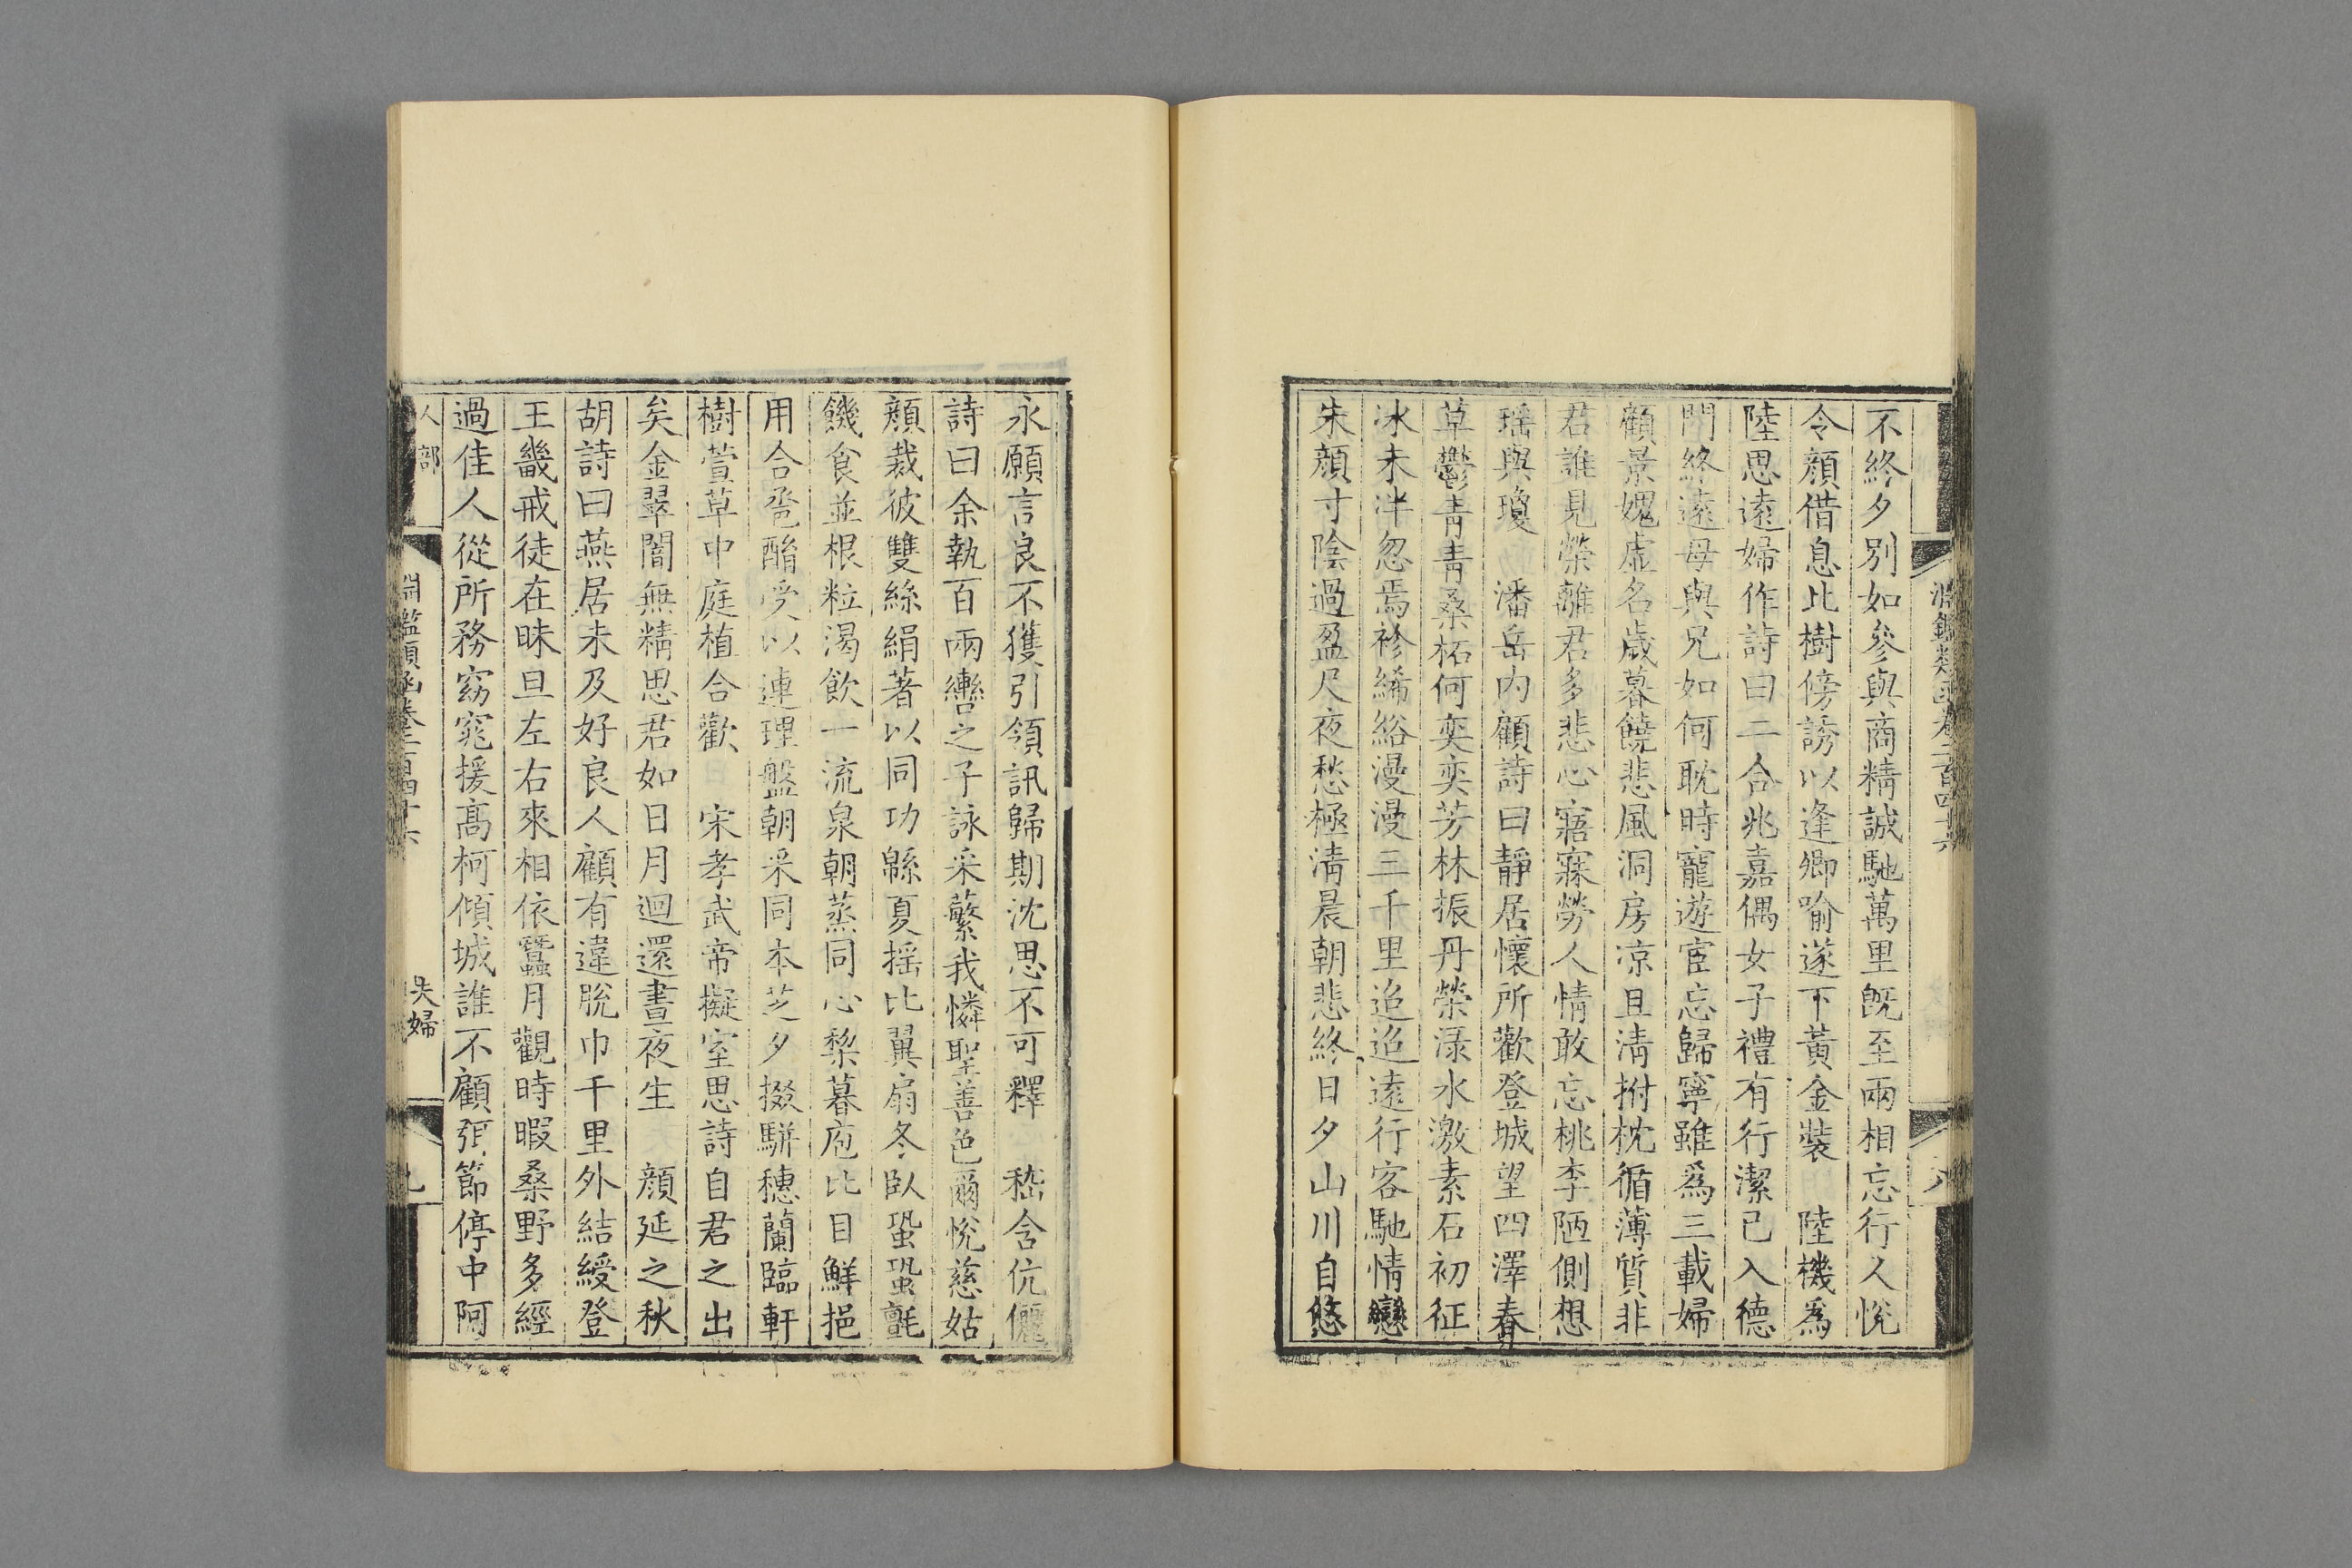 不終夕別如參與商精誠馳萬里旣至兩相忘行人悅
令顏借息比樹傍誘以逢卿喻遂下黃金裝　陸機爲
陸思遠婦作詩曰二合兆嘉偶女子禮有行潔己入德
門終遠母與兄如何耽時寵遊宦忘歸寧雖爲三載婦
顧景媿虛名歲暮饒悲風洞房凉且淸拊枕循薄質非
君誰見榮離君多悲心寤寐勞人情敢忘桃李陋側想
瑶與瓊　潘岳内顧詩曰靜居懷所歡登城望四澤春
草鬱靑靑桑柘何奕奕芳林振丹榮淥水激素石初征
冰未泮忽焉袗絺綌漫漫三千里迢迢遠行客馳情戀
朱顏寸陰過盈尺夜愁極淸晨朝悲終日夕山川自悠
永願言良不獲引領訊歸期沈思不可釋　嵇含伉儷
詩曰余執百兩轡之子詠采蘩我憐聖善色爾悅慈姑
顏裁彼雙絲絹著以同功緜夏搖比翼扇冬臥蛩蛩氈
饑食並根粒渴飮一流泉朝蒸同心棃暮庖比目鮮挹
用合巹酳受以連理盤朝采同本芝夕掇駢穗蘭臨軒
樹萱草中庭植合歡　宋孝武帝擬室思詩自君之出
矣金翠闇無精思君如日月迴還晝夜生　顏延之秋
胡詩曰燕居未及好良人顧有違脫巾千里外結綬登
王畿戒徒在昧旦左右來相依蠶月觀時暇桑野多經
過佳人從所務窈窕援高柯傾城誰不顧弭節停中阿
人部
淵鑑類函卷二百四十六
夫婦
九
淵鑑類函卷二百四十六
八